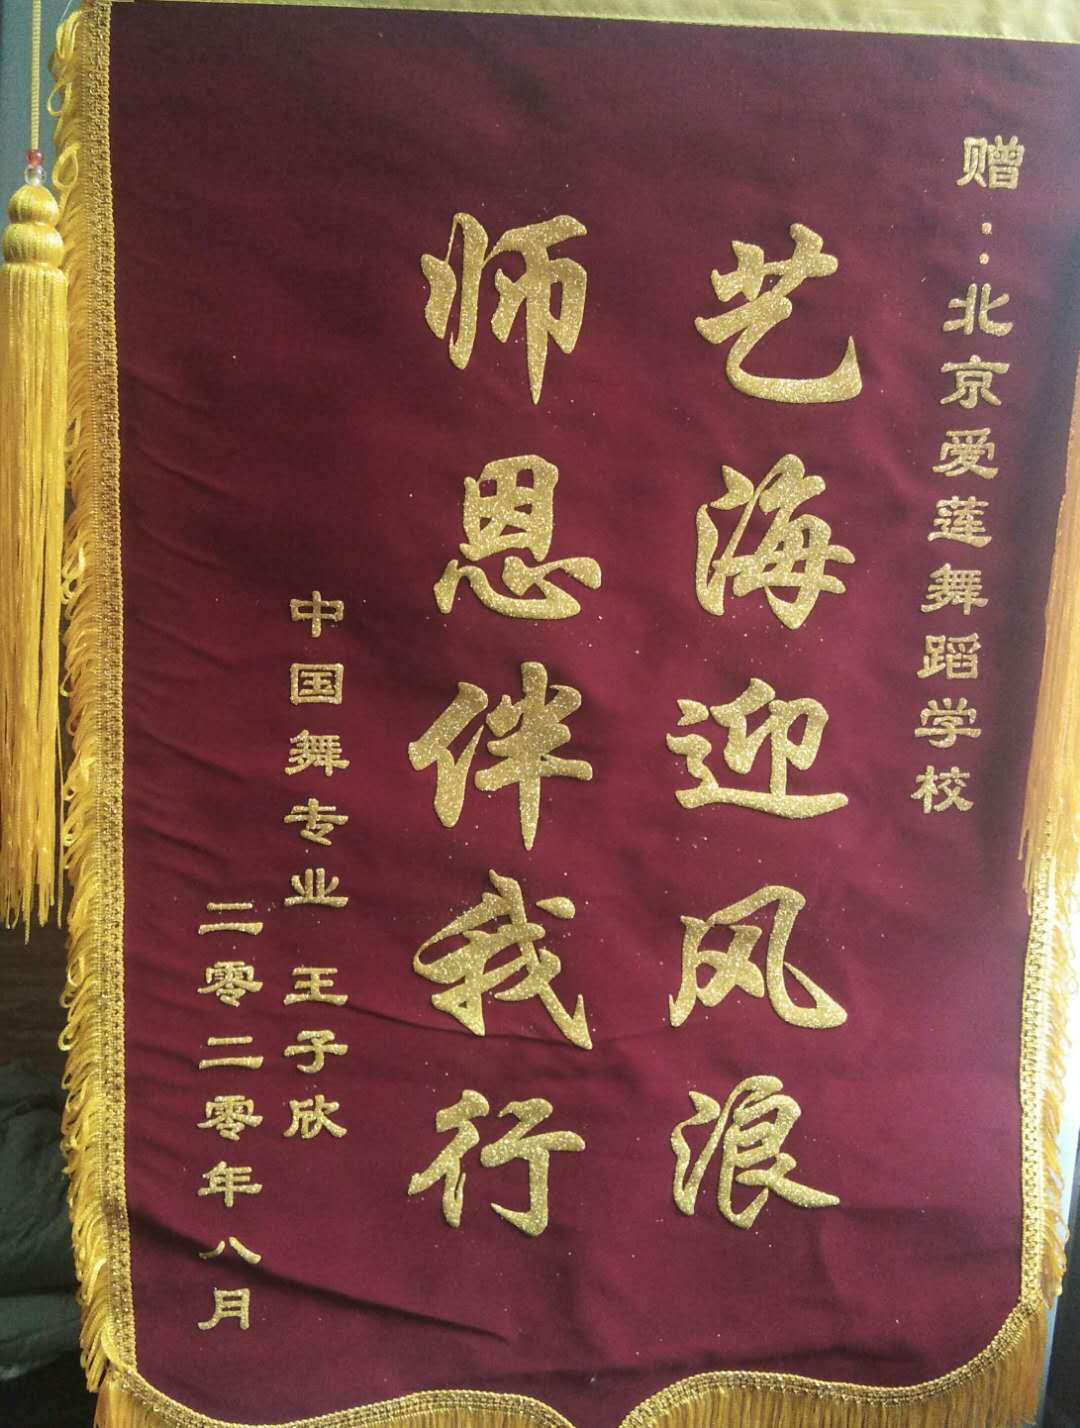 赠：北京爱莲舞蹈学校
艺海迎风浪
师恩伴我行
中国舞专业 王子欣
二零二零年八月